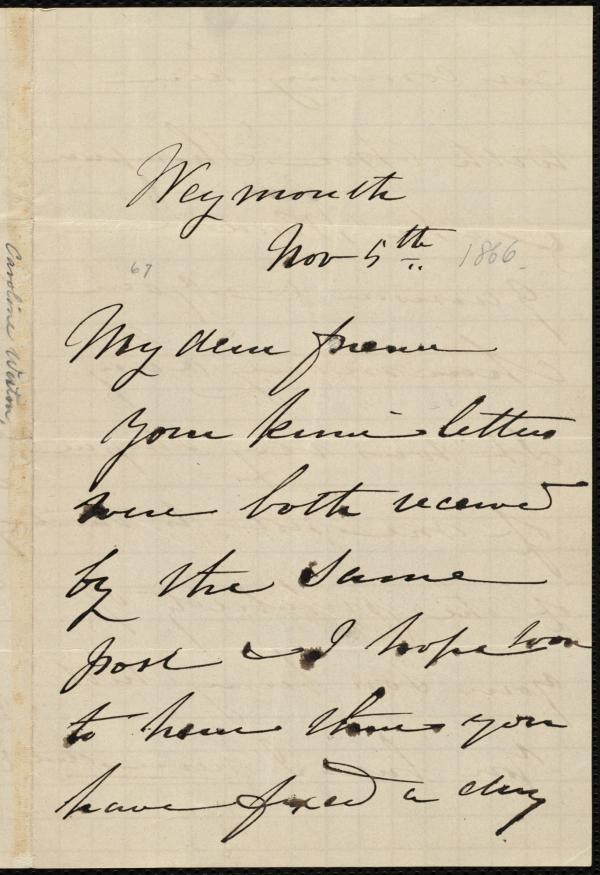 Weymouth
Nov 5th 1866.
67
My dear friend
Your kind letters
were both received
by the same
post & I hope soon
to hear that you
have fixed a day
Caroline Weston,